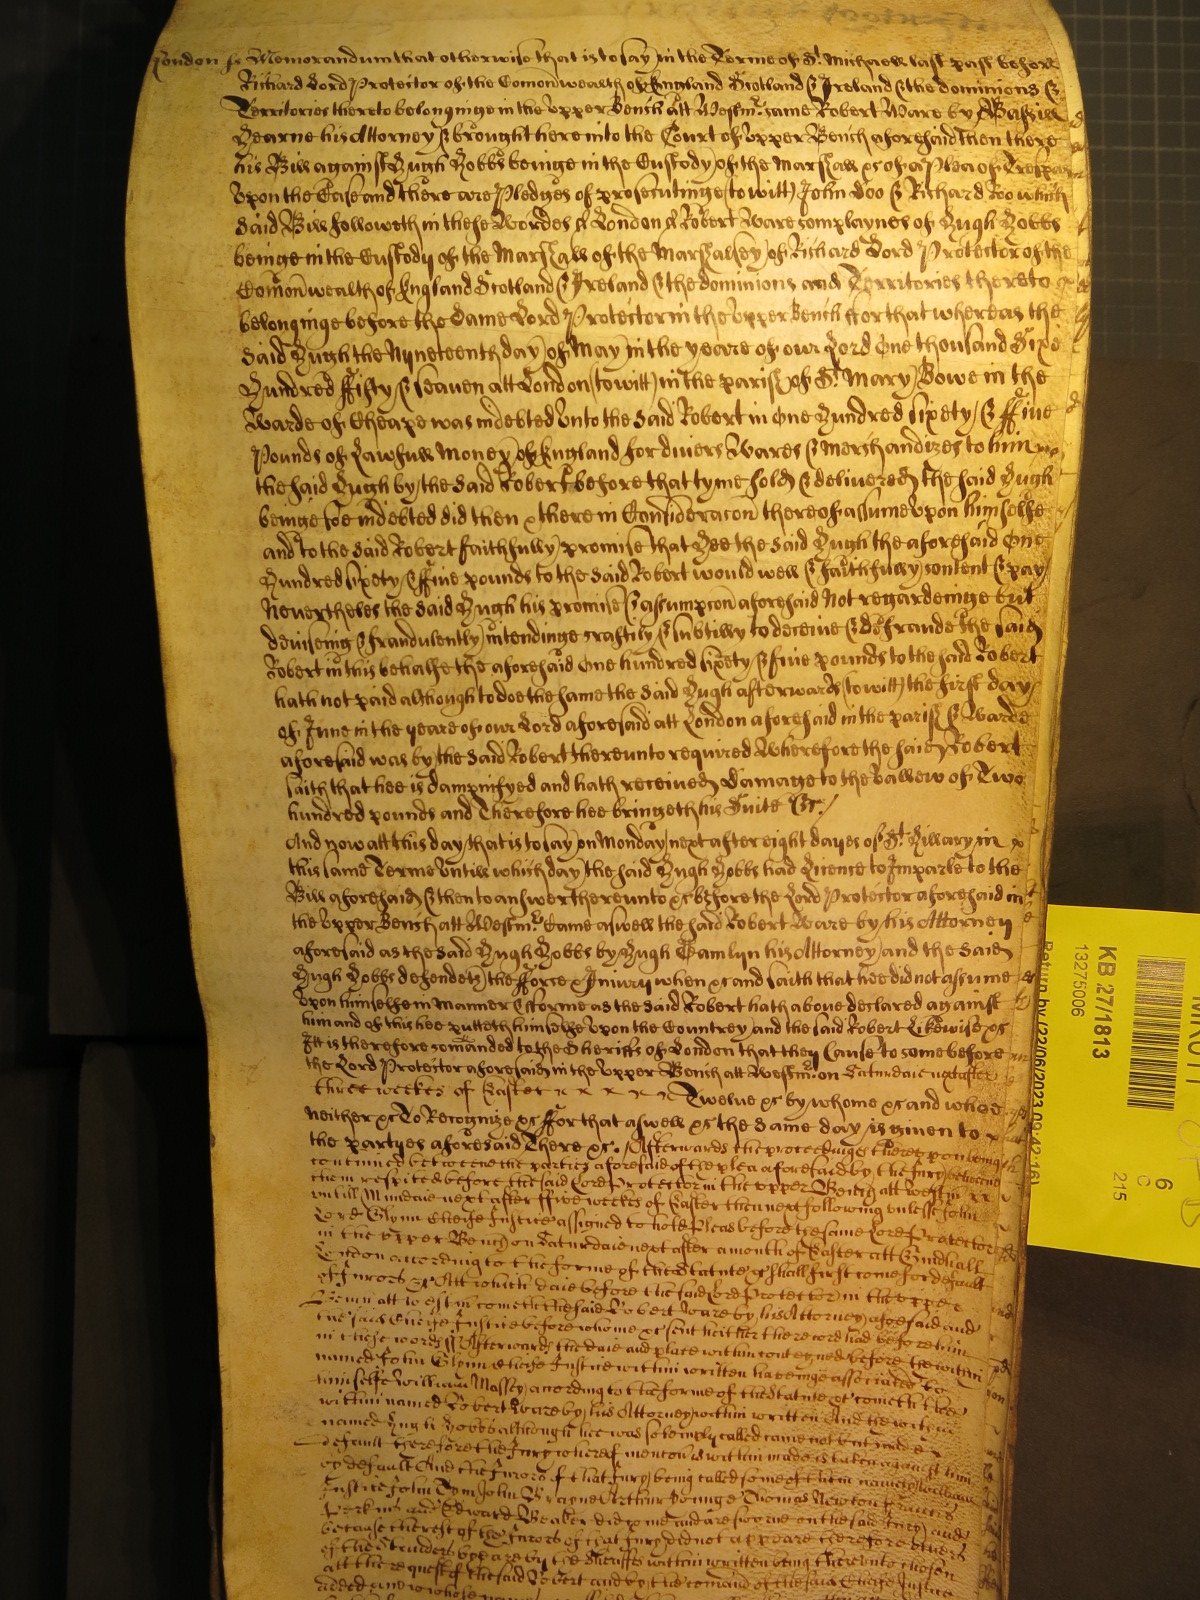 London ss Memorandum that otherwise that is to say in the Terme of St. Michaell last past before
Richard Lord Protector of the Comonwealth of England Scotland & Ireland & the dominions &
Territories thereto belonginge in the upper Bench att Westmr. came Robert Ware by
Hearne his Attorney & brought here into the Court of upper Bench aforesaid then there
his Bill against Hugh Hobbs beinge in the Custody of the Marshall &c of a Plea of Trespas
upon the Case and there are Pledges of prosecutinge (to witt) John Doo & Richard Roo which
said Bill followeth in these Wordes ss London ss Robert Ware complaynes of Hugh Hobbs
beinge in the Custody of the Marshall of the Marshalsey of Richard Lord Protector of the
Comonwealth of England Scotland & Ireland & the dominions and Territories thereto
belonginge before the same Lord Protector in the upper Bench ffor that whereas the
said Hugh the Nyneteenth day of May in the yeare of our Lord One thousand Sixe
Hundred ffifty & seaven att London (to witt) in the parish of St. Mary Bowe in the
Warde of Cheape was indebted unto the said Robert in One Hundred sixety & ffive
Pounds of Lawfull Money of England for divers Wares & Merchandizes to him
the said Hugh by the said Robert before that tyme sold & delivered the said Hugh
beinge soe indebted did then & there in Consideracon thereof assume upon himselfe
and to the said Robert faithfully promise that Hee the said Hugh the aforesaid One
Hundred sixety & ffive pounds to the said Robert would well & faithfully content & pay
Nevertheles the said Hugh his promise & assumpcon aforesaid Not regardeinge but
deviseing & fraudulently intendinge craftily & subtilly to deceive & defraude the said
Robert in this behalfe the aforesaid One hundred sixety & five pounds to the said Robert
hath not paid although to doe the same the said Hugh afterwards (to witt) the first day
of June in the yeare of our Lord aforesaid att London aforesaid in the parish & Warde
aforesaid was by the said Robert thereunto required Wherefore the said Robert
saith that hee is dampnifyed and hath received Damage to the vallew of Two
hundred pounds and Therefore hee bringeth his Suite &c.
And now att this day that is to say on Monday next after eight dayes of St. Hillary in
this same Terme Untill which day the said Hugh Hobbs had Licence to Imparle to the
Bill aforesaid & then to answer thereunto &c before the Lord Protector aforesaid in
the upper Bench att Westmr. Came aswell the said Robert Ware by his Attorney
aforesaid as the said Hugh Hobbs by Hugh Hamlyn his Attorney and the said
Hugh Hobbs defendeth the fforce & Iniury when &c and saith that hee did not assume
upon himselfe in Manner & forme as the said Robert hath above declared against
him and of this hee putteth himselfe upon the Countrey and the said Robert Likewise &c
Itt is therefore comanded to the Sheriffs of London that they Cause to come before
the Lord Protector aforesaid in the upper Bench att Westmr. on Saturdaie next after
three weekes of Easter Twelve &c by whome &c and whoe
neither &c To Recognize &c ffor that aswell &c the same day is given to
the partyes aforesaid There &c. Afterwards the proceedinge thereupon being
continued betweene the parties aforesaid of the plea aforesaid by the Jury betweene
them respited before the said Lord Protector in the upper Bench att Westm
untill Mundaie next after ffive weekes of Easter then next following unlesse John
Lord Glynn Cheife Justice assigned to hold Pleas before the same Lord Protector
in the upper Bench on Saturdaie next after a month of Easter att Guildhall
London according to the forme of the Statute &c shall first come for default
of Jurors &c Att which daie before the said Lord Protector in the upper
Bench att Westm cometh the said Robert Ware by his Attorney aforesaid and
the said Cheife Justice before whome &c sent hither the record had before him
in these words ss Afterwards the daie and place within conteyned before the within
named John Glynn Cheife Justice within written haveinge associated to
himselfe William Massey according to the forme of the Statute &c cometh the
within named Robert Ware by his Attorney within written And the within
named Hugh Hobbs although hee was solemply called came not but made
default Therefore the Jury whereof mencon is within made is taken against him
by default And the Jurors of that Jury being called some of them namely William
Justice John John Arthur Younge Thomas Newton Francis
Perkins and Edward did come and are sworne on the said Jury and
because the rest of the Jurors of that Jury did not appeare therefore others
of the Standers by are by the Sheriffs within written being thereunto chosen
att the request of the said Robert and by the comand of the said Cheife Justice
added anew whose
KB 27/1813
13275006
Return by (22/06/2023 09:42:16)
6
C
215